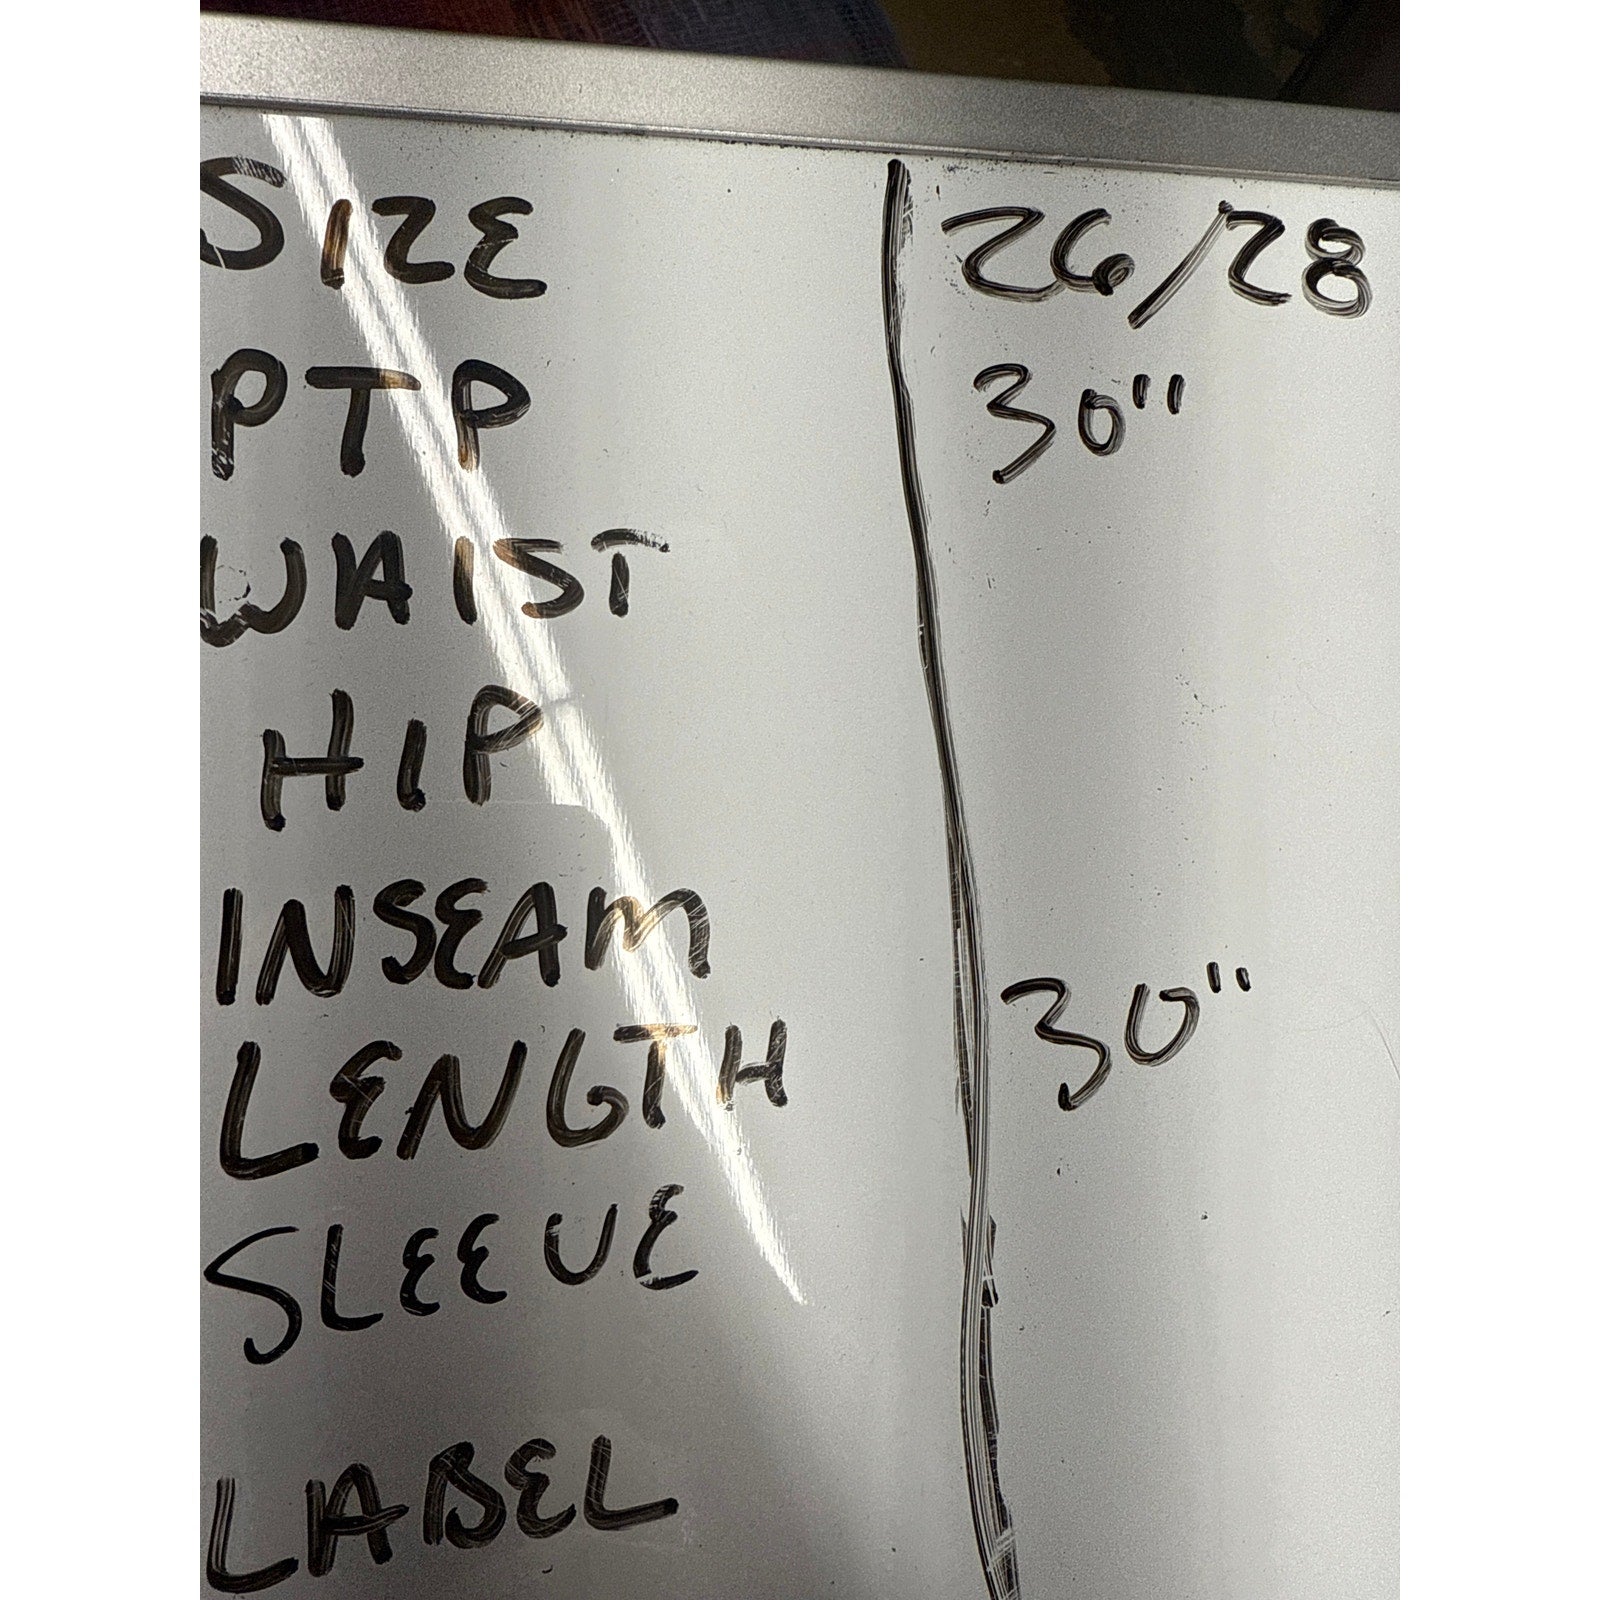 SIZE 26/28
PTP 30"
WAIST
HIP
INSEAM
LENGTH 30"
SLEEVE
LABEL